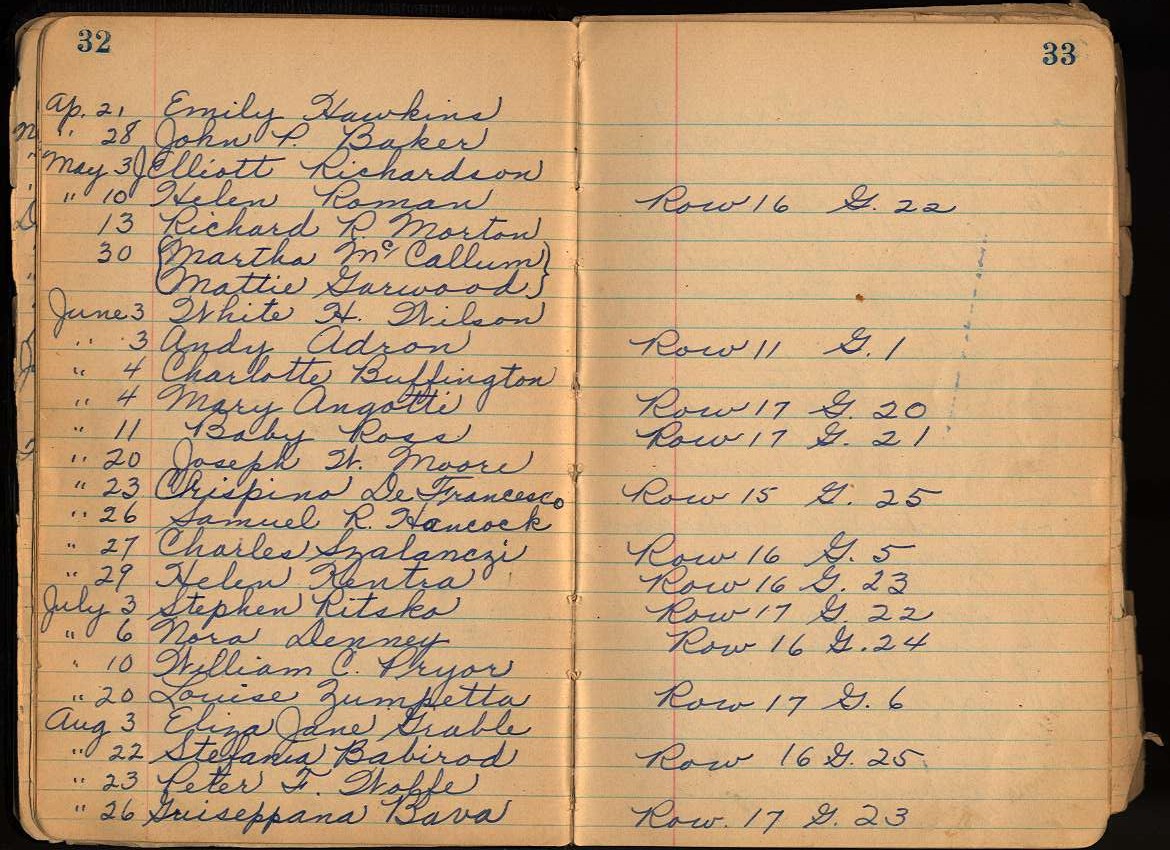 32
33
Ap. 21 Emily Hawkins
" 28 John P. Baker
May 3 J Elliott Richardson
" 10 Helen Roman Row 16 G. 22
13 Richard R. Morton
30 {Martha McCallum}
{Mattie Garwood}
June 3 White H. Wilson
" 3 Andy Adron Row 11 G. 1
" 4 Charlotte Buffington
" 4 Mary Angotti Row 17 G. 20
" 11 Baby Ross Row 17 G. 21
" 20 Joseph W. Moore
" 23 Crispino De Francesco Row 15 G. 25
" 26 Samuel R. Hancock
" 27 Charles Szalanczi Row 16 G. 5
" 29 Helen Kentra Row 16 G. 23
July 3 Stephen Ritsko Row 17 G. 22
" 6 Nora Denney Row 16 G. 24
" 10 William C. Pryor
" 20 Louise Zumpetta Row 17 G. 6
Aug 3 Eliza Jane Grable
" 22 Stefania Babirod Row 16 G. 25
" 23 Peter F. Wolfe
" 26 Guiseppana Bava Row. 17 G. 23